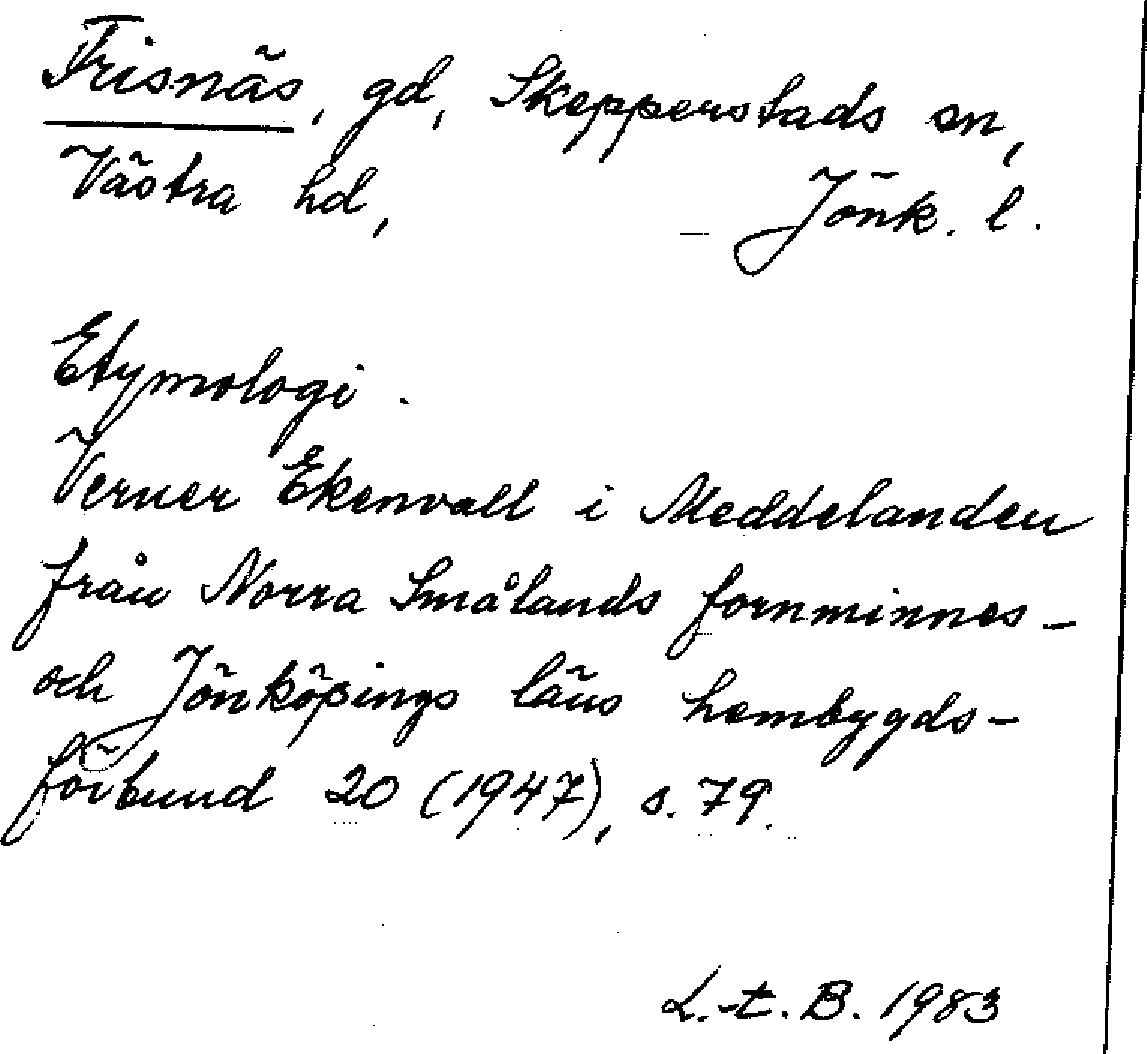 Frisnäs, gd, Skepperstads sn,
Västra hd, Jönk. l.
Etymologi.
Verner Ekenvall i Meddelanden
från Norra Smålands fornminnes-
och Jönköpings läns hembygds-
förbund 20 (1947), s. 79.
L.-t. B. 1983